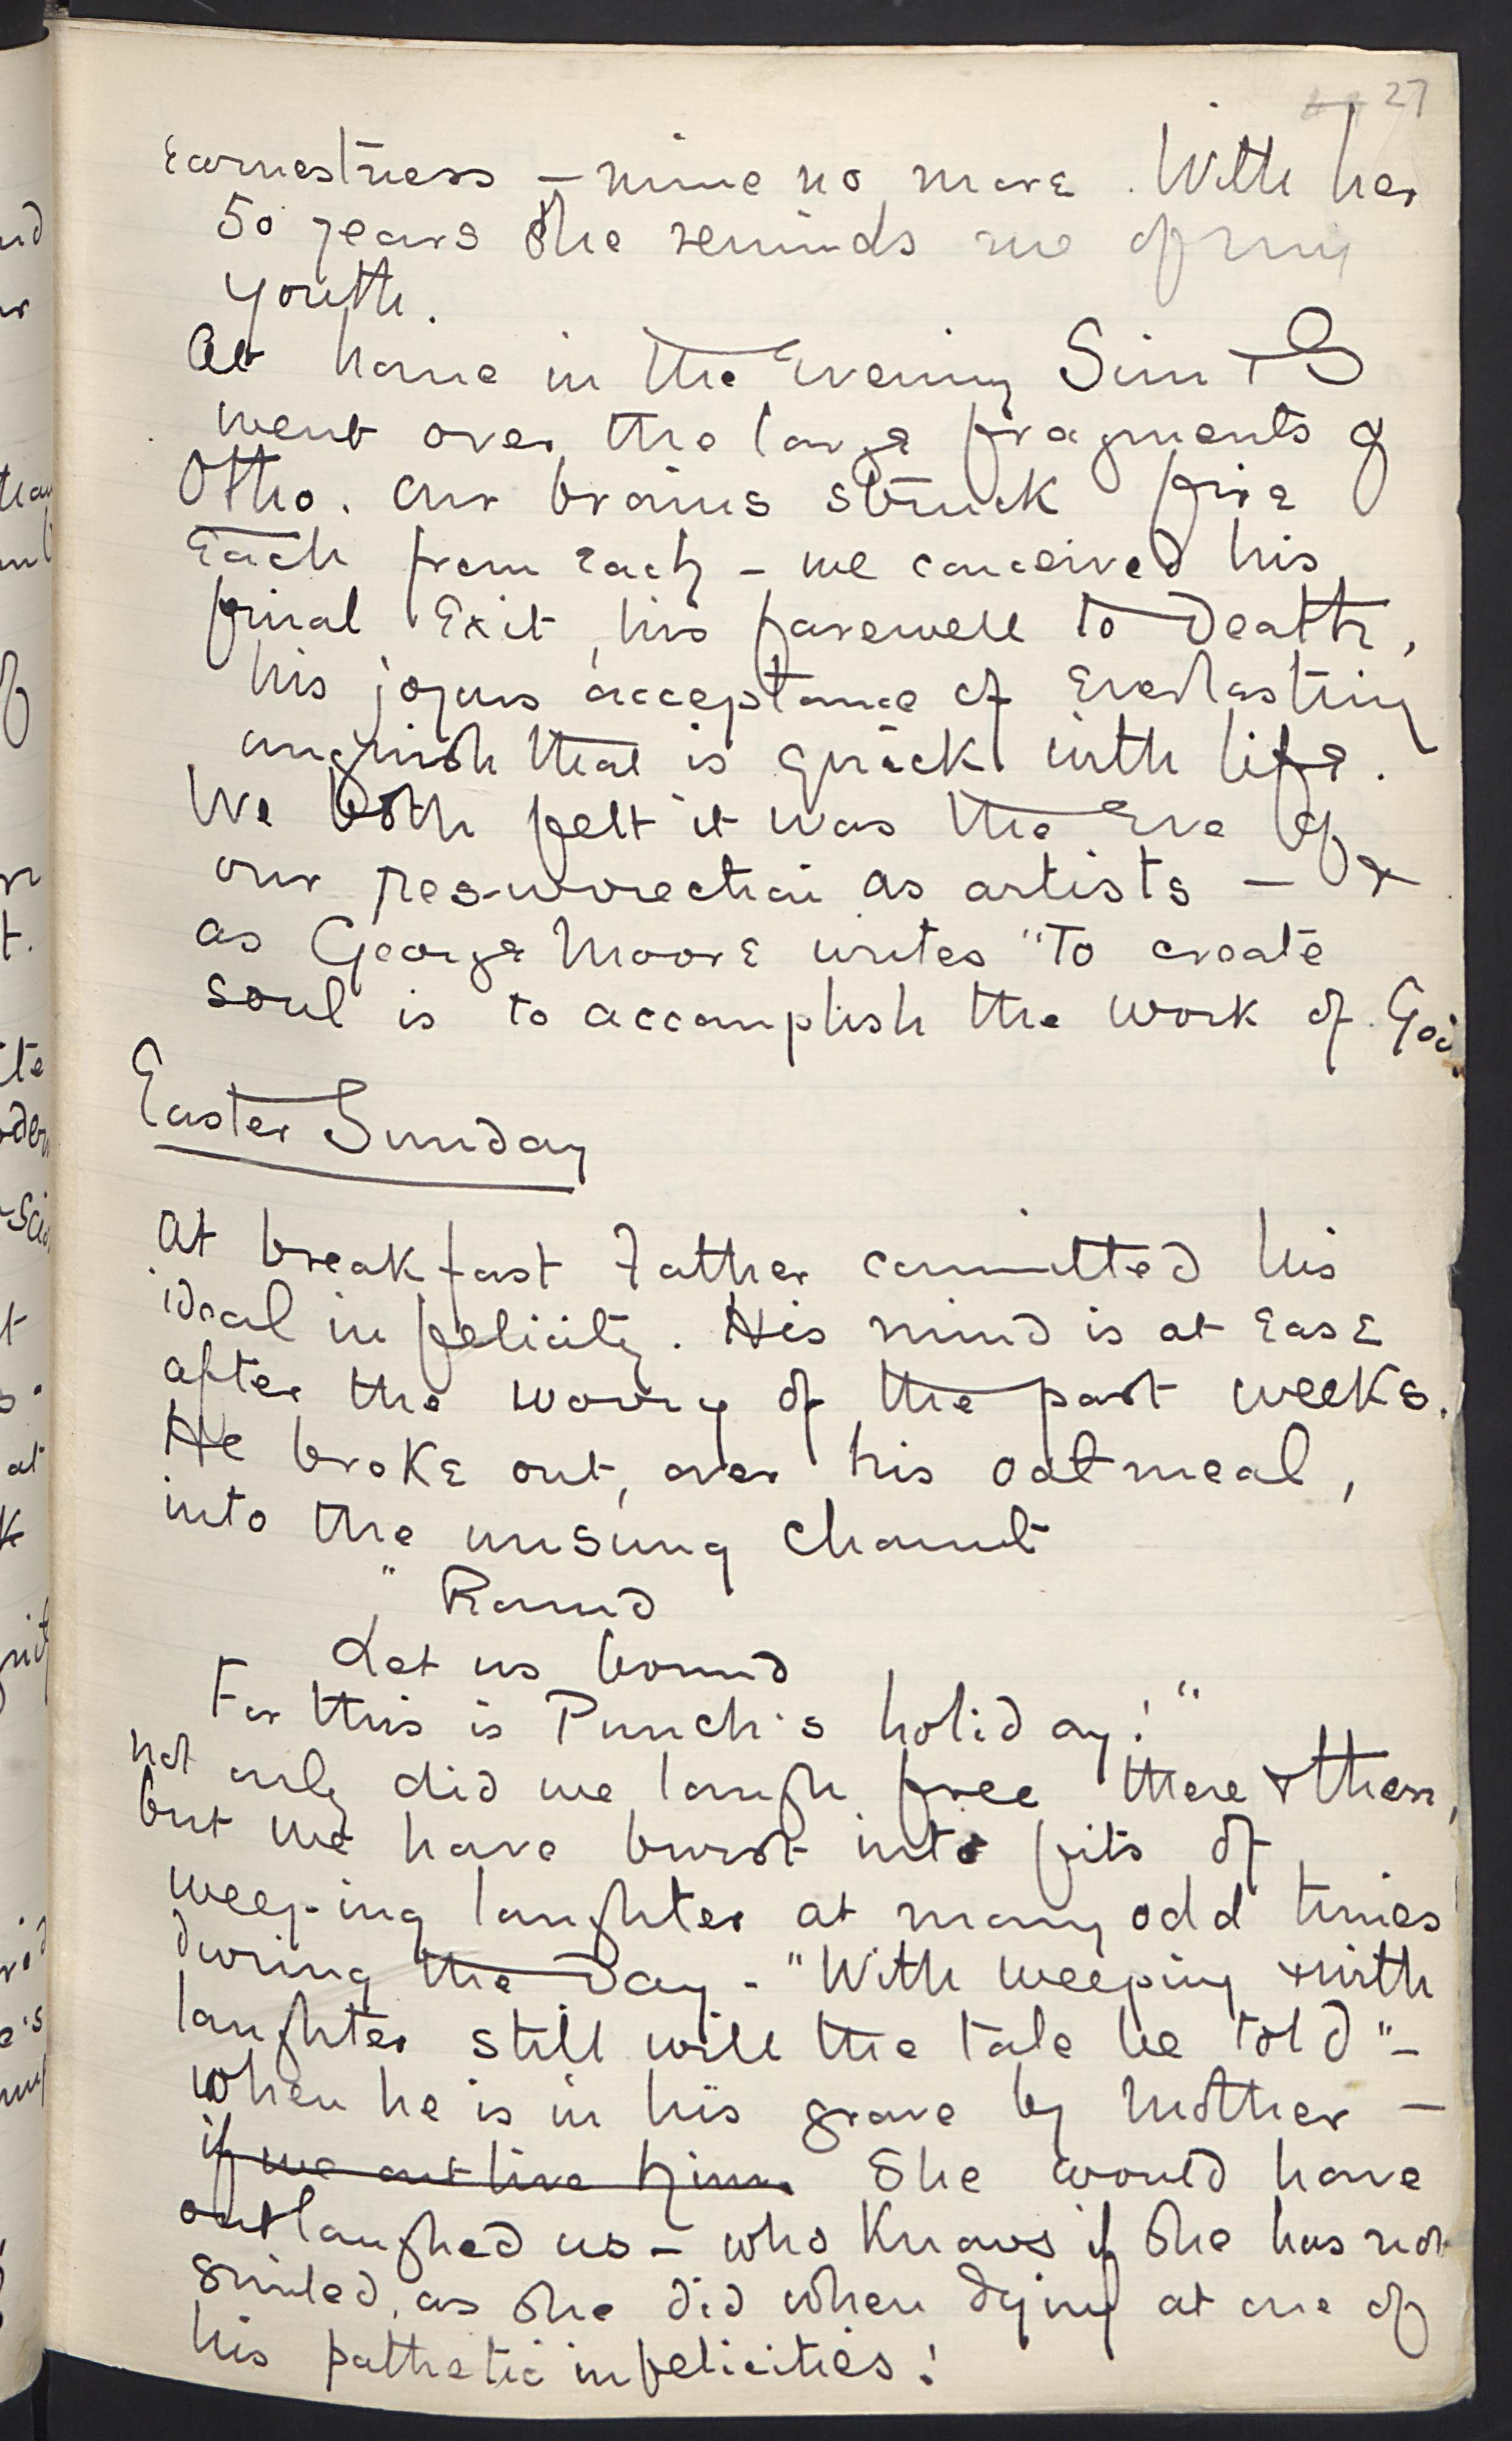 27
Earnestness — mine no more. With her
50 years She reminds me of my
youth.
At home in the Evening Sim & I
went over the large fragments of
Otho. Our brains struck fire
Each from Each — we conceived his
final Exit, his farewell to Death,
his joyous acceptance of Everlasting
anguish that is quick with life.
We both felt it was the Eve of
our resurrection as artists — &
as George Moore writes "To create
soul is to accomplish the work of God.
Easter Sunday
At breakfast Father committed his
ideal infelicity. His mind is at Ease
after the worry of the past weeks.
He broke out, over his oatmeal,
into the unsung chaunt
"Round
Let us bound
For this is Punch's holiday!"
not only did we laugh free there & then,
but we have burst into fits of
weeping laughter at many odd times
during the Day. "With weeping & with
laughter still will the tale be told" —
when he is in his grave by Mother —
if we outlive him. She would have
outlaughed us — who Knows if She has not
Smiled, as She did when dying at one of
his pathetic infelicities!